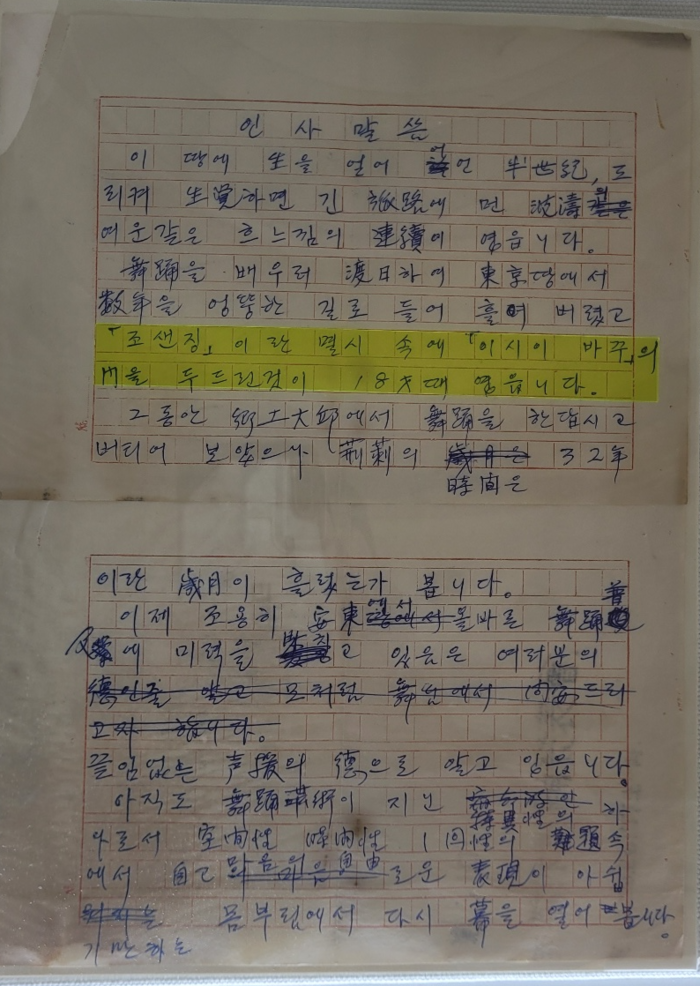 인사말씀
이 땅에 生을 얻어 어언 半世紀, 도
리켜 生覺하면 긴 旅路에 먼 波濤의
여운같은 흐느낌의 連續이 였읍니다.
舞踊을 배우러 渡日하여 東京땅에서
數年을 엉뚱한 길로 들어 흘여 버렸고
「조센징」이란 멸시 속에 「이시이 바꾸」의
門을 두드린것이 18才때 였읍니다.
그동안 鄕土大邱에서 舞踊을 한답시고
버티어 보았으나 荊莿의 歲月은 32年
時間은
이란 歲月이 흘렀는가 봅니다.
이제 조용히 安東에서 올바른 舞踊普
及에 미력을 고 있음은 여러분의
德인줄 알고 모처럼 舞台에서 드리
고자 합니다.
끝임없는 声援의 德으로 알고 있읍니다.
아직도 舞踊藝術이 지닌 特異性의 하
나로서 空間性 時間性 1回性의 難題속
에서 自己 마음의 自由로운 表現이 아쉽
기만하는 몸부림에서 다시 幕을 열어 봅니다.